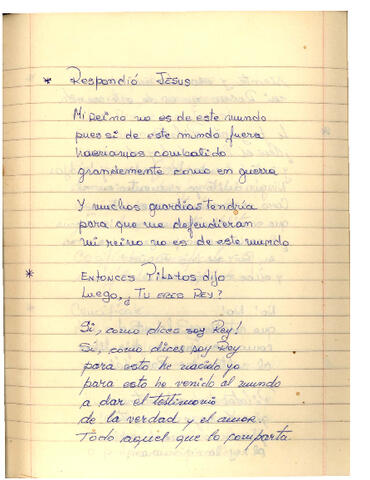 * Respondió Jesus
Mi reino no es de este mundo
pues si de este mundo fuera
habriamos combatido
grandemente como en guerra
Y muchos guardias tendria
para que me defendieran
mi reino no es de este mundo
* Entonces Pilatos dijo
Luego, ¿Tu eres Rey?
Si, como dices soy Rey!
Si, como dices soy Rey
para esto he nacido yo
para esto he venido al mundo
a dar el testimonio
de la verdad y el amor.
Todo aquel que lo comparta